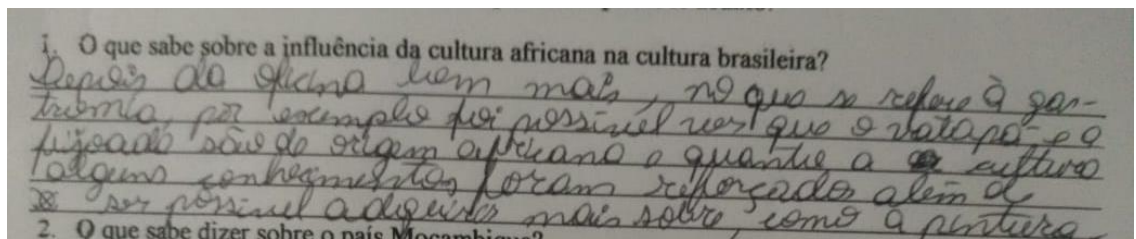 1. O que sabe sobre a influência da cultura africana na cultura brasileira?
Depois da oficina bem mais, no que se refere à gas-
tromia, por exemplo foi possível ver que o vatapá e a
feijoada são de origem africana e quanto a cultura
alguns conhecimentos foram reforçados além de
ser possível adquirir mais sobre, como a pintura
2. O que sabe dizer sobre o país Moçambique?